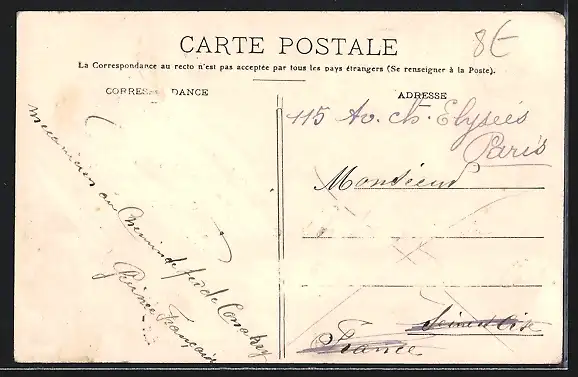 8€
CARTE POSTALE
La Correspondance au recto n'est pas acceptée par tous les pays étrangers (Se renseigner à la Poste).
CORRES DANCE
ADRESSE
mecanicien au Chemin de fer de Conakry
Guinée Française
115 Av. Ch. Elyseés
Paris
Monsieur
Seine et Oise
France